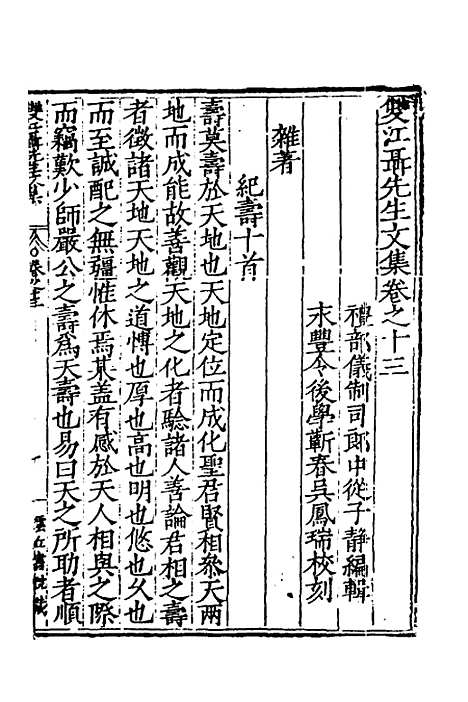 雙江聶先生文集卷之十三
禮部儀制司郎中從子靜編輯
永豐令後學蘄春吳鳳瑞校刻
雜著
紀壽十首
壽莫壽於天地也天地定位而成化聖君賢相叅天兩
地而成能故善觀天地之化者驗諸人善論君相之壽
者徵諸天地天地之道博也厚也高也明也悠也久也
而至誠配之無疆惟休焉某盖有感於天人相與之際
而竊歎少師嚴公之壽爲天壽也易曰天之所助者順
雙江聶先生文集
雲丘書院藏